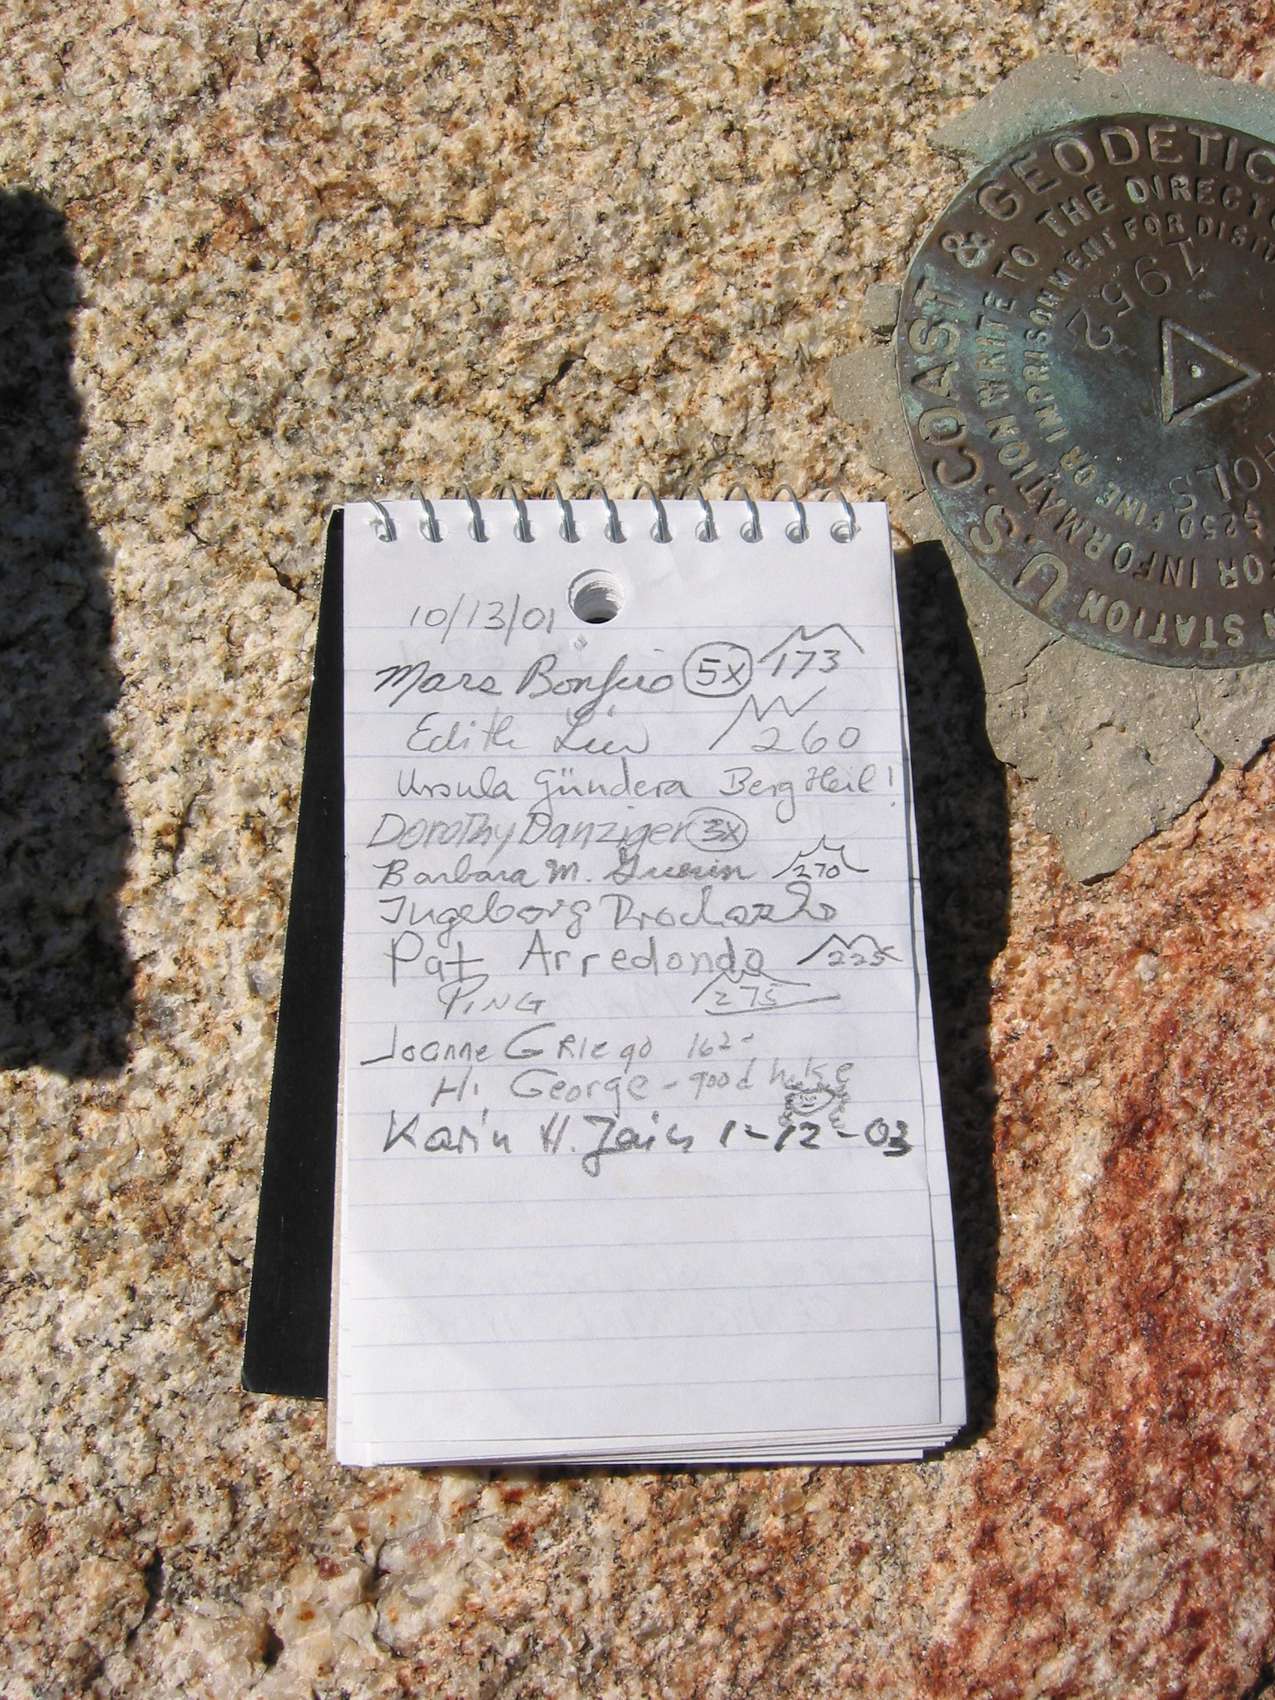 10/13/01
Mars Bonfire 5X 173
Edith Liu 260
Ursula Gündera Berg Heil!
Dorothy Danziger 3X
Barbara M. Guerin 270
Ingeborg Prochazka
Pat Arredondo 225
PING 275
Joanne Griego 162
Hi George - good hike
Karin H. 1-12-03
U.S. COAST & GEODETIC
STATION
FOR INFORMATION WRITE TO THE DIRECTO
$250 FINE OR IMPRISONMENT FOR DISTU
1952